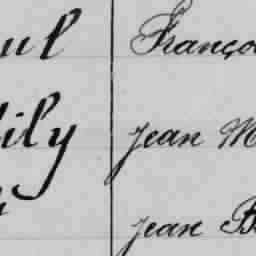 ul Franço
ily Jean M
Jean B